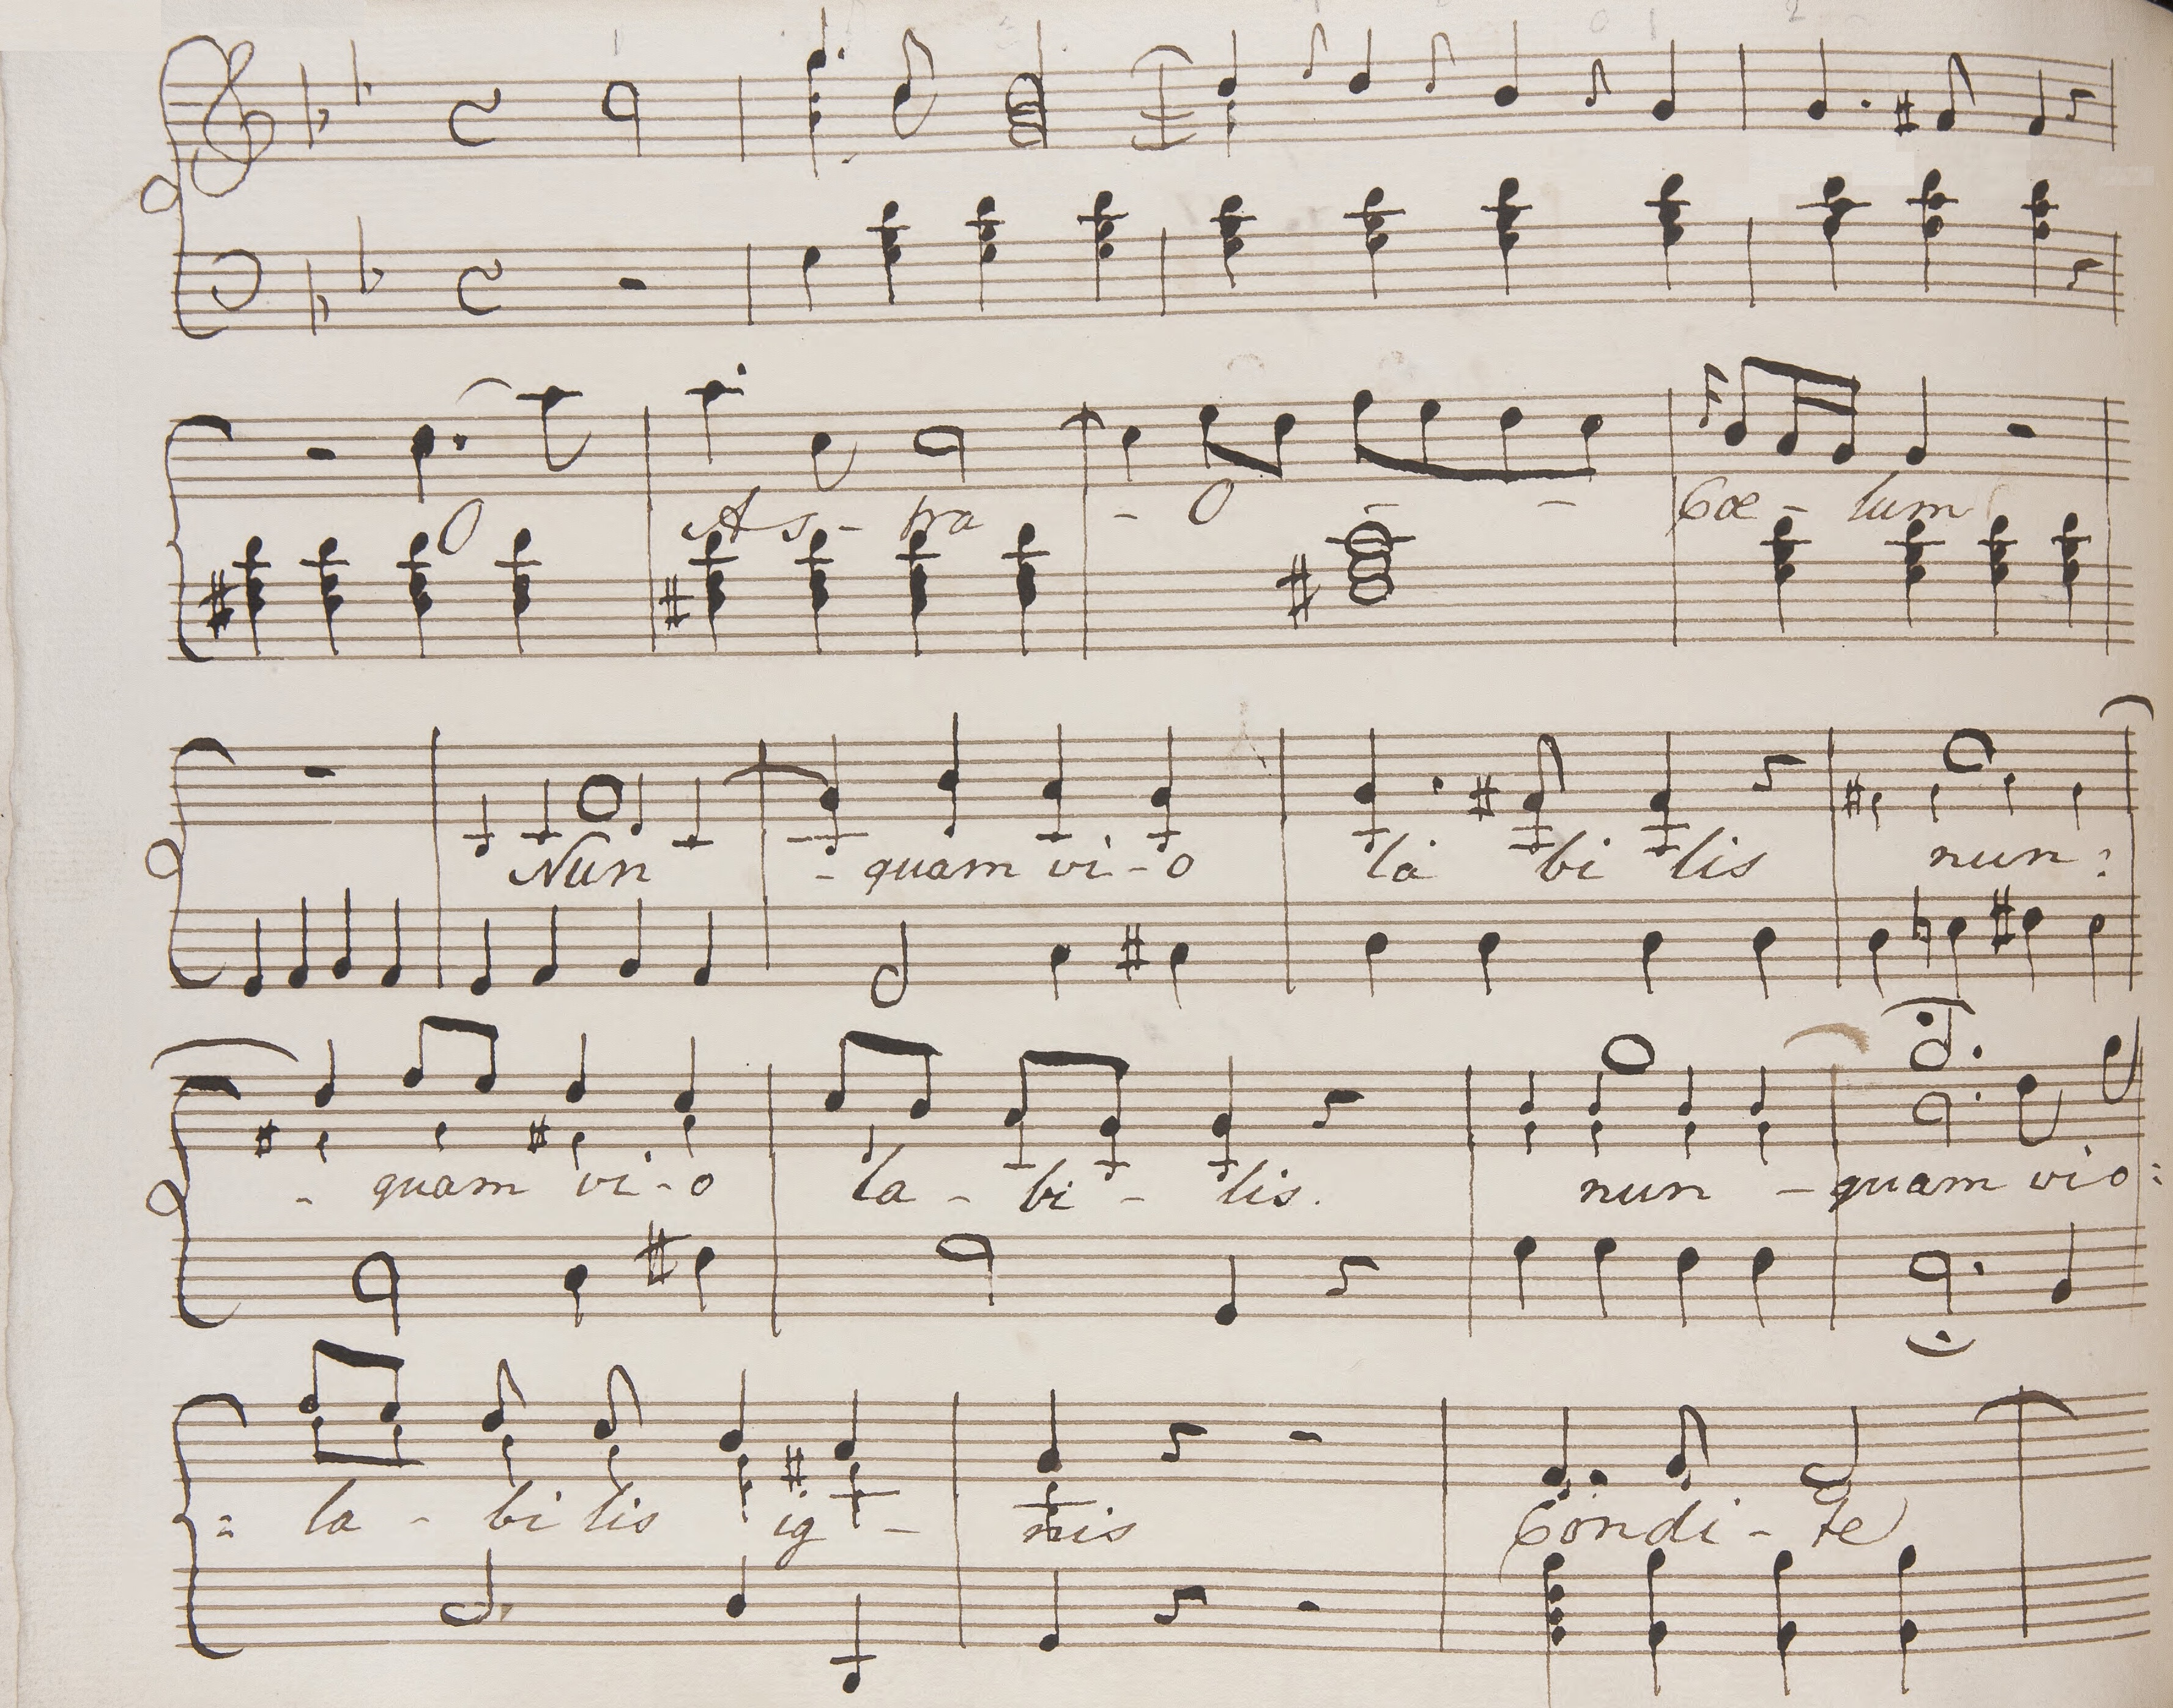 O As - tra - O - - Cœ - lum
Nun - quam vi - o la bi lis nun :
- quam vi - o la - bi - lis. nun - quam vio :
= la - bi lis ig - nis Condi - te